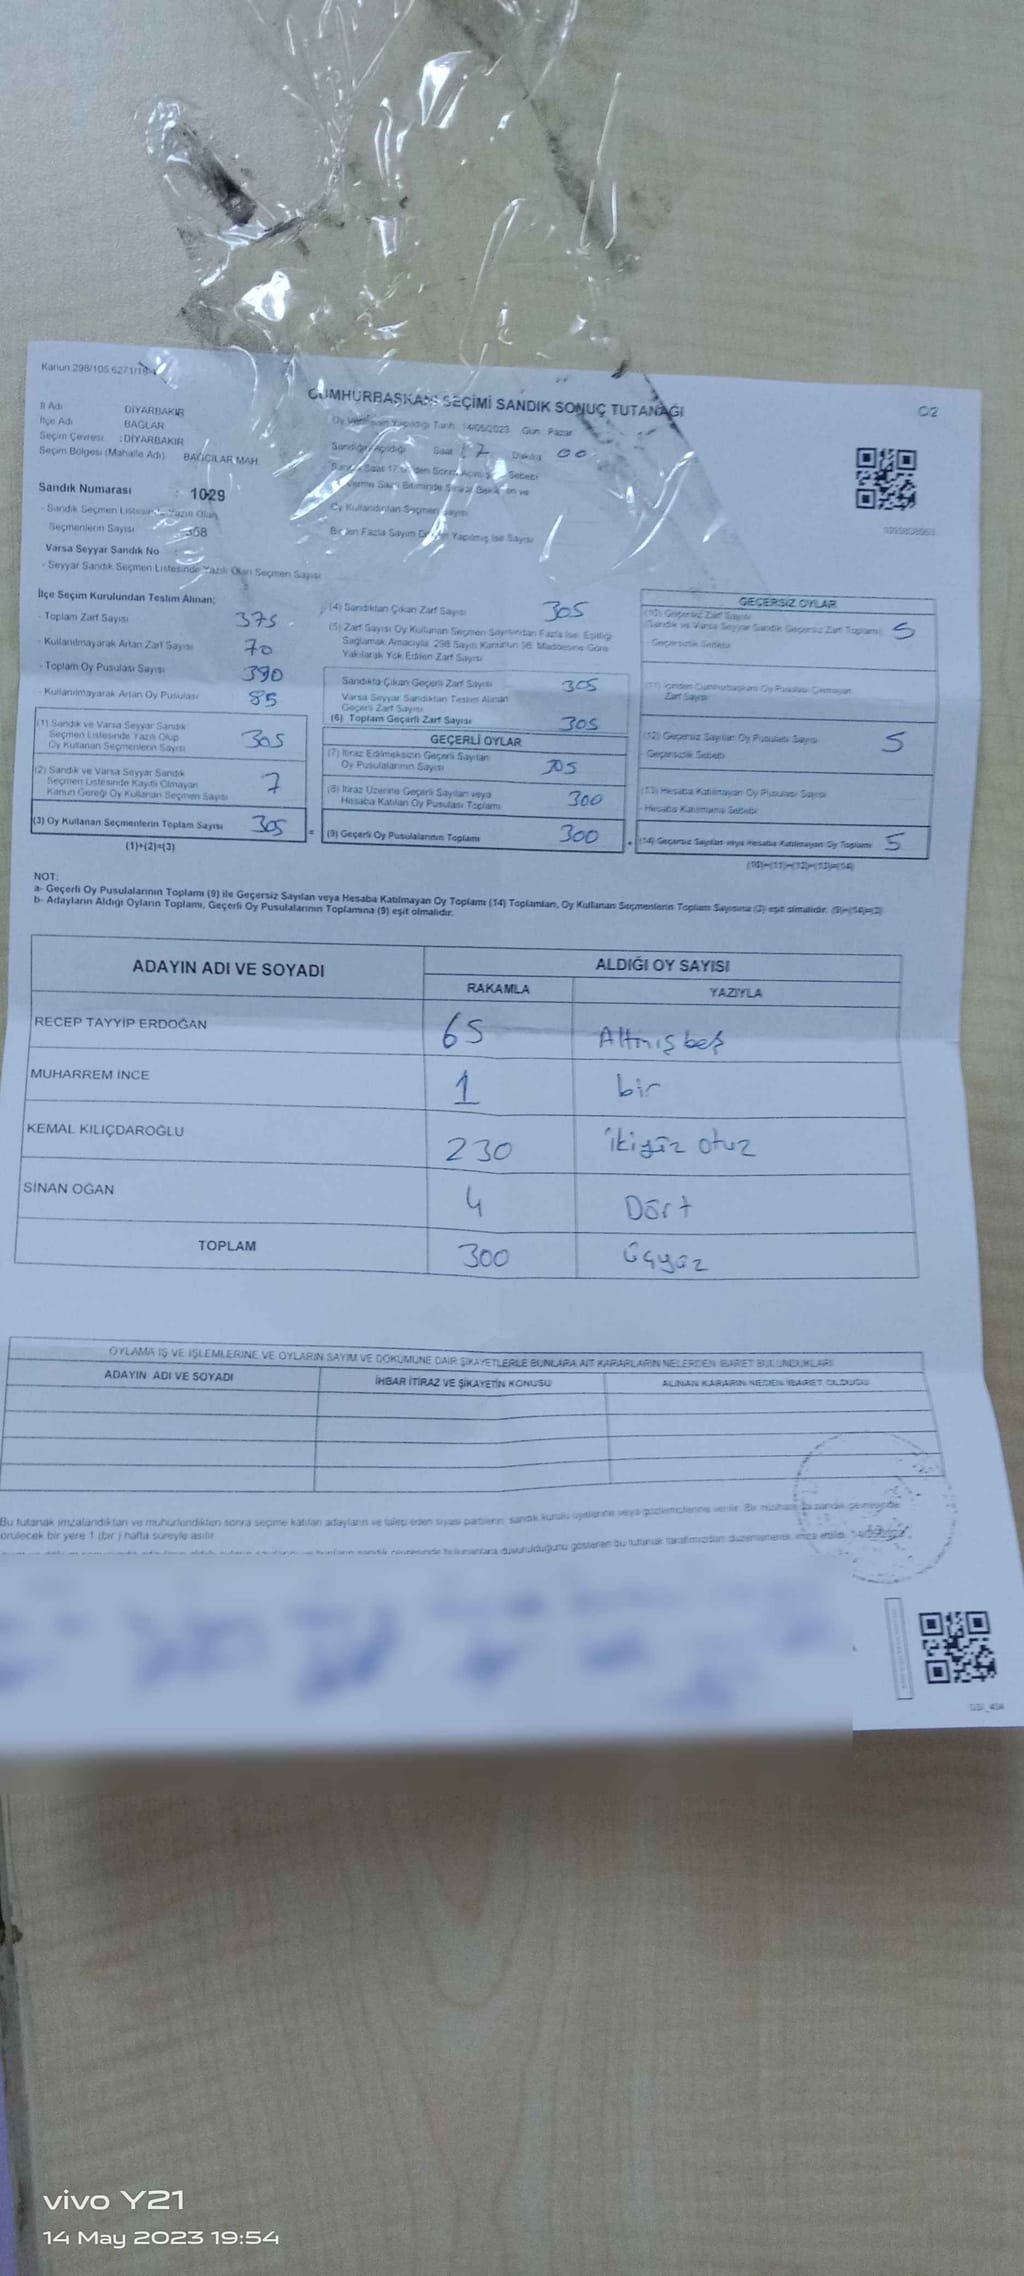 Kanun 298/105 6271/18
CUMHURBAŞKANI SEÇİMİ SANDIK SONUÇ TUTANAĞI
C/2
İl Adı DİYARBAKIR
İlçe Adı BAĞLAR
Seçim Çevresi : DİYARBAKIR
Seçim Bölgesi (Mahalle Adı) BAĞCILAR MAH.
Oy Verme Yapıldığı Tarih 14/05/2023 Gün Pazar
Sandığın Açıldığı Saat 17 Dakika 00
Sandık Numarası : 1029
- Sandık Seçmen Listesinde Yazılı Olan
Seçmenlerin Sayısı 368
Varsa Seyyar Sandık No
- Seyyar Sandık Seçmen Listesinde Yazılı Olan Seçmen Sayısı
Oy Kullandırılan Seçmen Sayısı
Birden Fazla Sayım Yapılmış İse Sayısı
İlçe Seçim Kurulundan Teslim Alınan;
- Toplam Zarf Sayısı 375
- Kullanılmayarak Artan Zarf Sayısı 70
- Toplam Oy Pusulası Sayısı 390
- Kullanılmayarak Artan Oy Pusulası 85
(1) Sandık ve Varsa Seyyar Sandık
Seçmen Listesinde Yazılı Olup
Oy Kullanan Seçmenlerin Sayısı 305
(2) Sandık ve Varsa Seyyar Sandık
Seçmen Listesinde Kayıtlı Olmayan
Kanun Gereği Oy Kullanan Seçmen Sayısı 7
(3) Oy Kullanan Seçmenlerin Toplam Sayısı 305
(1)+(2)=(3)
=
(4) Sandıktan Çıkan Zarf Sayısı 305
(5) Zarf Sayısı Oy Kullanan Seçmen Sayısından Fazla İse, Eşitliği
Sağlamak Amacıyla, 298 Sayılı Kanunun 98. Maddesine Göre
Yakılarak Yok Edilen Zarf Sayısı
Sandıkta Çıkan Geçerli Zarf Sayısı 305
Varsa Seyyar Sandıktan Teslim Alınan
Geçerli Zarf Sayısı
(6) Toplam Geçerli Zarf Sayısı 305
GEÇERLİ OYLAR
(7) İtiraz Edilmeksizin Geçerli Sayılan
Oy Pusulalarının Sayısı 305
(8) İtiraz Üzerine Geçerli Sayılan veya
Hesaba Katılan Oy Pusulası Toplamı 300
(9) Geçerli Oy Pusulalarının Toplamı 300
+
GEÇERSİZ OYLAR
(10) Geçersiz Zarf Sayısı
(Sandık ve Varsa Seyyar Sandık Geçersiz Zarf Toplamı) 5
- Geçersizlik Sebebi
(11) İçinden Cumhurbaşkanı Oy Pusulası Çıkmayan
Zarf Sayısı
(12) Geçersiz Sayılan Oy Pusulası Sayısı 5
- Geçersizlik Sebebi
(13) Hesaba Katılmayan Oy Pusulası Sayısı
- Hesaba Katılmama Sebebi
(14) Geçersiz Sayılan veya Hesaba Katılmayan Oy Toplamı 5
(10)+(11)+(12)+(13)=(14)
NOT:
a- Geçerli Oy Pusulalarının Toplamı (9) ile Geçersiz Sayılan veya Hesaba Katılmayan Oy Toplamı (14) Toplamları, Oy Kullanan Seçmenlerin Toplam Sayısına (3) eşit olmalıdır. (9)+(14)=(3)
b- Adayların Aldığı Oyların Toplamı, Geçerli Oy Pusulalarının Toplamına (9) eşit olmalıdır.
ADAYIN ADI VE SOYADI ALDIĞI OY SAYISI
RAKAMLA YAZIYLA
RECEP TAYYİP ERDOĞAN 65 Altmışbeş
MUHARREM İNCE 1 bir
KEMAL KILIÇDAROĞLU 230 ikiyüz otuz
SİNAN OĞAN 4 Dört
TOPLAM 300 üçyüz
OYLAMA İŞ VE İŞLEMLERİNE VE OYLARIN SAYIM VE DÖKÜMÜNE DAİR ŞİKAYETLERLE BUNLARA AİT KARARLARIN NELERDEN İBARET BULUNDUKLARI
ADAYIN ADI VE SOYADI İHBAR İTİRAZ VE ŞİKAYETİN KONUSU ALINAN KARARIN NEDEN İBARET OLDUĞU
Bu tutanak imzalandıktan ve mühürlendikten sonra seçime katılan adayların ve talep eden siyasi partilerin sandık kurulu üyelerine veya gözlemcilerine verilir. Bir nüshası da sandık çevresinde
görülecek bir yere 1 (bir) hafta süreyle asılır.
vivo Y21
14 May 2023 19:54